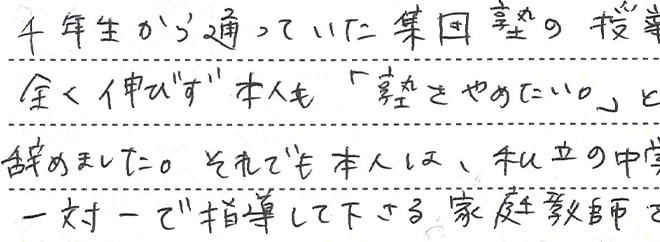 4年生から通っていた集団塾の授業
全く伸びず本人も「塾をやめたい。」と
辞めました。それでも本人は、私立の中学
一対一で指導して下さる家庭教師を